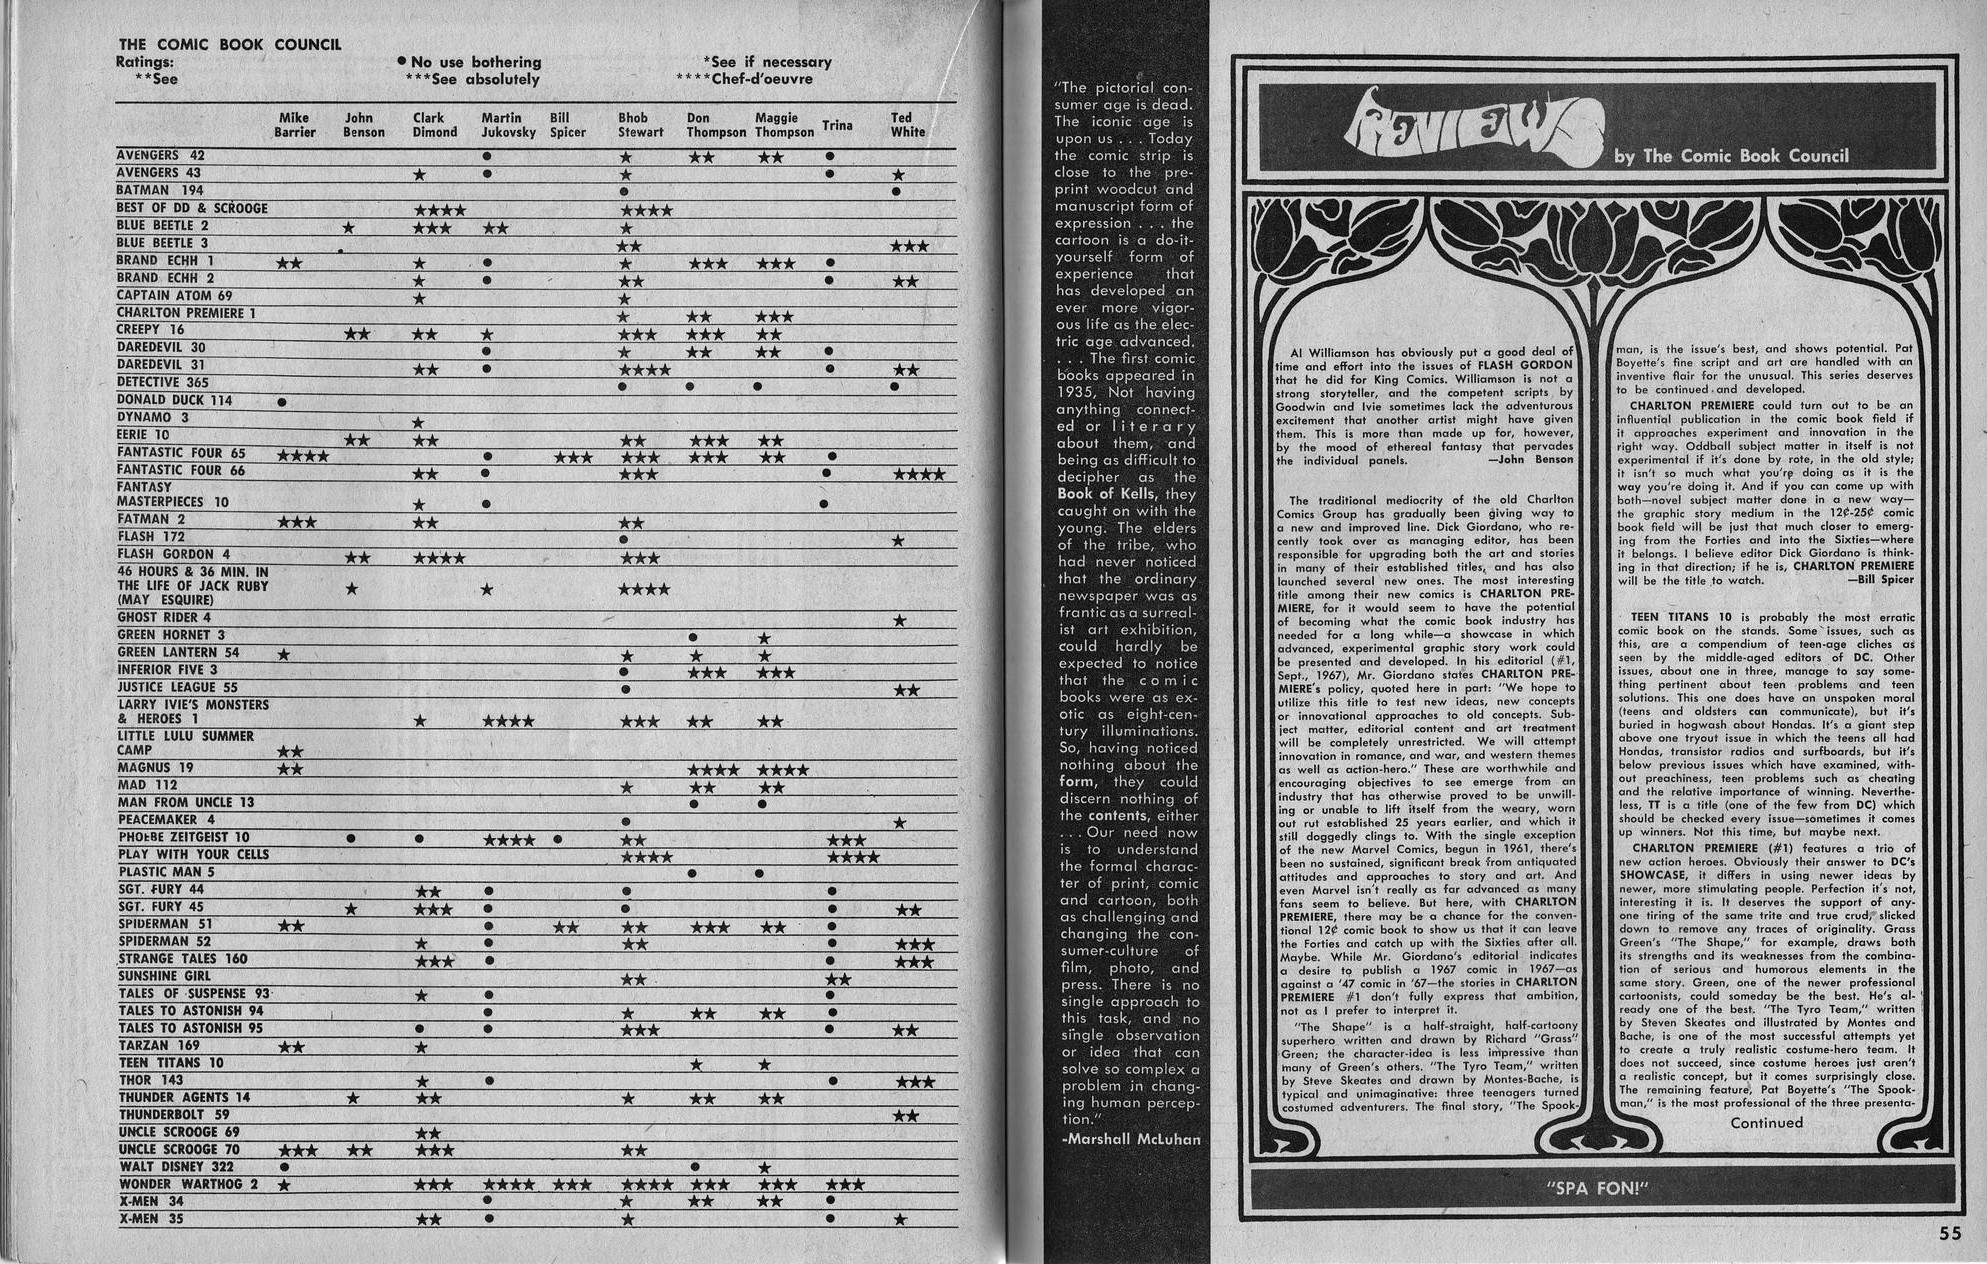 THE COMIC BOOK COUNCIL
Ratings:
**See
● No use bothering
***See absolutely
*See if necessary
****Chef-d'oeuvre
Mike Barrier
John Benson
Clark Dimond
Martin Jukovsky
Bill Spicer
Bhob Stewart
Don Thompson
Maggie Thompson
Trina
Ted White
AVENGERS 42 ● ★ ★★ ★★ ●
AVENGERS 43 ★ ● ★ ● ★
BATMAN 194 ● ●
BEST OF DD & SCROOGE ★★★★ ★★★★
BLUE BEETLE 2 ★ ★★★ ★★ ★
BLUE BEETLE 3 ★★ ★★★
BRAND ECHH 1 ★★ ★ ● ★ ★★★ ★★★ ●
BRAND ECHH 2 ★ ● ★★ ● ★★
CAPTAIN ATOM 69 ★ ★
CHARLTON PREMIERE 1 ★ ★★ ★★★
CREEPY 16 ★★ ★★ ★ ★★★ ★★★ ★★
DAREDEVIL 30 ● ★ ★★ ★★ ●
DAREDEVIL 31 ★★ ● ★★★★ ● ★★
DETECTIVE 365 ● ● ● ●
DONALD DUCK 114 ●
DYNAMO 3 ★
EERIE 10 ★★ ★★ ★★ ★★★ ★★
FANTASTIC FOUR 65 ★★★★ ● ★★★ ★★★ ★★★ ★★ ●
FANTASTIC FOUR 66 ★★ ● ★★★ ● ★★★★
FANTASY
MASTERPIECES 10 ★ ● ●
FATMAN 2 ★★★ ★★ ★★
FLASH 172 ● ★
FLASH GORDON 4 ★★ ★★★★ ★★★
46 HOURS & 36 MIN. IN
THE LIFE OF JACK RUBY ★ ★ ★★★★
(MAY ESQUIRE)
GHOST RIDER 4 ★
GREEN HORNET 3 ● ★
GREEN LANTERN 54 ★ ★ ★ ★
INFERIOR FIVE 3 ● ★★★ ★★★
JUSTICE LEAGUE 55 ● ★★
LARRY IVIE'S MONSTERS
& HEROES 1 ★ ★★★★ ★★★ ★★ ★★
LITTLE LULU SUMMER
CAMP ★★
MAGNUS 19 ★★ ★★★★ ★★★★
MAD 112 ★ ★★ ★★
MAN FROM UNCLE 13 ● ●
PEACEMAKER 4 ● ★
PHOEBE ZEITGEIST 10 ● ● ★★★★ ● ★★ ★★★
PLAY WITH YOUR CELLS ★★★★ ★★★★
PLASTIC MAN 5 ● ●
SGT. FURY 44 ★★ ● ● ●
SGT. FURY 45 ★ ★★★ ● ● ● ★★
SPIDERMAN 51 ★★ ● ★★ ★★ ★★★ ★★ ●
SPIDERMAN 52 ★ ● ★★ ● ★★★
STRANGE TALES 160 ★★★ ● ● ★★★
SUNSHINE GIRL ★★ ★★
TALES OF SUSPENSE 93 ★ ● ●
TALES TO ASTONISH 94 ● ★ ★★ ★★ ●
TALES TO ASTONISH 95 ● ● ★★★ ● ★★
TARZAN 169 ★★ ★
TEEN TITANS 10 ★ ★
THOR 143 ★ ● ● ★★★
THUNDER AGENTS 14 ★ ★★ ★ ★★ ★★
THUNDERBOLT 59 ★★
UNCLE SCROOGE 69 ★★
UNCLE SCROOGE 70 ★★★ ★★ ★★★ ★★
WALT DISNEY 322 ● ● ★
WONDER WARTHOG 2 ★ ★★★ ★★★★ ★★★ ★★★★ ★★★ ★★★ ★★★
X-MEN 34 ● ★ ★★ ★★ ●
X-MEN 35 ★★ ● ★ ● ★
"The pictorial con-
sumer age is dead.
The iconic age is
upon us . . . Today
the comic strip is
close to the pre-
print woodcut and
manuscript form of
expression . . . the
cartoon is a do-it-
yourself form of
experience that
has developed an
ever more vigor-
ous life as the elec-
tric age advanced.
. . . The first comic
books appeared in
1935, Not having
anything connect-
ed or literary
about them, and
being as difficult to
decipher as the
Book of Kells, they
caught on with the
young. The elders
of the tribe, who
had never noticed
that the ordinary
newspaper was as
frantic as a surreal-
ist art exhibition,
could hardly be
expected to notice
that the comic
books were as ex-
otic as eight-cen-
tury illuminations.
So, having noticed
nothing about the
form, they could
discern nothing of
the contents, either
. . . Our need now
is to understand
the formal charac-
ter of print, comic
and cartoon, both
as challenging and
changing the con-
sumer-culture of
film, photo, and
press. There is no
single approach to
this task, and no
single observation
or idea that can
solve so complex a
problem in chang-
ing human percep-
tion."
-Marshall McLuhan
REVIEWS
by The Comic Book Council
Al Williamson has obviously put a good deal of
time and effort into the issues of FLASH GORDON
that he did for King Comics. Williamson is not a
strong storyteller, and the competent scripts by
Goodwin and Ivie sometimes lack the adventurous
excitement that another artist might have given
them. This is more than made up for, however,
by the mood of ethereal fantasy that pervades
the individual panels. —John Benson
The traditional mediocrity of the old Charlton
Comics Group has gradually been giving way to
a new and improved line. Dick Giordano, who re-
cently took over as managing editor, has been
responsible for upgrading both the art and stories
in many of their established titles, and has also
launched several new ones. The most interesting
title among their new comics is CHARLTON PRE-
MIERE, for it would seem to have the potential
of becoming what the comic book industry has
needed for a long while—a showcase in which
advanced, experimental graphic story work could
be presented and developed. In his editorial (#1,
Sept., 1967), Mr. Giordano states CHARLTON PRE-
MIERE's policy, quoted here in part: "We hope to
utilize this title to test new ideas, new concepts
or innovational approaches to old concepts. Sub-
ject matter, editorial content and art treatment
will be completely unrestricted. We will attempt
innovation in romance, and war, and western themes
as well as action-hero." These are worthwhile and
encouraging objectives to see emerge from an
industry that has otherwise proved to be unwill-
ing or unable to lift itself from the weary, worn
out rut established 25 years earlier, and which it
still doggedly clings to. With the single exception
of the new Marvel Comics, begun in 1961, there's
been no sustained, significant break from antiquated
attitudes and approaches to story and art. And
even Marvel isn't really as far advanced as many
fans seem to believe. But here, with CHARLTON
PREMIERE, there may be a chance for the conven-
tional 12¢ comic book to show us that it can leave
the Forties and catch up with the Sixties after all.
Maybe. While Mr. Giordano's editorial indicates
a desire to publish a 1967 comic in 1967—as
against a '47 comic in '67—the stories in CHARLTON
PREMIERE #1 don't fully express that ambition,
not as I prefer to interpret it.
"The Shape" is a half-straight, half-cartoony
superhero written and drawn by Richard "Grass"
Green; the character-idea is less impressive than
many of Green's others. "The Tyro Team," written
by Steve Skeates and drawn by Montes-Bache, is
typical and unimaginative: three teenagers turned
costumed adventurers. The final story, "The Spook-
man, is the issue's best, and shows potential. Pat
Boyette's fine script and art are handled with an
inventive flair for the unusual. This series deserves
to be continued and developed.
CHARLTON PREMIERE could turn out to be an
influential publication in the comic book field if
it approaches experiment and innovation in the
right way. Oddball subject matter in itself is not
experimental if it's done by rote, in the old style;
it isn't so much what you're doing as it is the
way you're doing it. And if you can come up with
both—novel subject matter done in a new way—
the graphic story medium in the 12¢-25¢ comic
book field will be just that much closer to emerg-
ing from the Forties and into the Sixties—where
it belongs. I believe editor Dick Giordano is think-
ing in that direction; if he is, CHARLTON PREMIERE
will be the title to watch. —Bill Spicer
TEEN TITANS 10 is probably the most erratic
comic book on the stands. Some issues, such as
this, are a compendium of teen-age cliches as
seen by the middle-aged editors of DC. Other
issues, about one in three, manage to say some-
thing pertinent about teen problems and teen
solutions. This one does have an unspoken moral
(teens and oldsters can communicate), but it's
buried in hogwash about Hondas. It's a giant step
above one tryout issue in which the teens all had
Hondas, transistor radios and surfboards, but it's
below previous issues which have examined, with-
out preachiness, teen problems such as cheating
and the relative importance of winning. Neverthe-
less, TT is a title (one of the few from DC) which
should be checked every issue—sometimes it comes
up winners. Not this time, but maybe next.
CHARLTON PREMIERE (#1) features a trio of
new action heroes. Obviously their answer to DC's
SHOWCASE, it differs in using newer ideas by
newer, more stimulating people. Perfection it's not,
interesting it is. It deserves the support of any-
one tiring of the same trite and true crud, slicked
down to remove any traces of originality. Grass
Green's "The Shape," for example, draws both
its strengths and its weaknesses from the combina-
tion of serious and humorous elements in the
same story. Green, one of the newer professional
cartoonists, could someday be the best. He's al-
ready one of the best. "The Tyro Team," written
by Steven Skeates and illustrated by Montes and
Bache, is one of the most successful attempts yet
to create a truly realistic costume-hero team. It
does not succeed, since costume heroes just aren't
a realistic concept, but it comes surprisingly close.
The remaining feature, Pat Boyette's "The Spook-
man," is the most professional of the three presenta-
Continued
"SPA FON!"
55